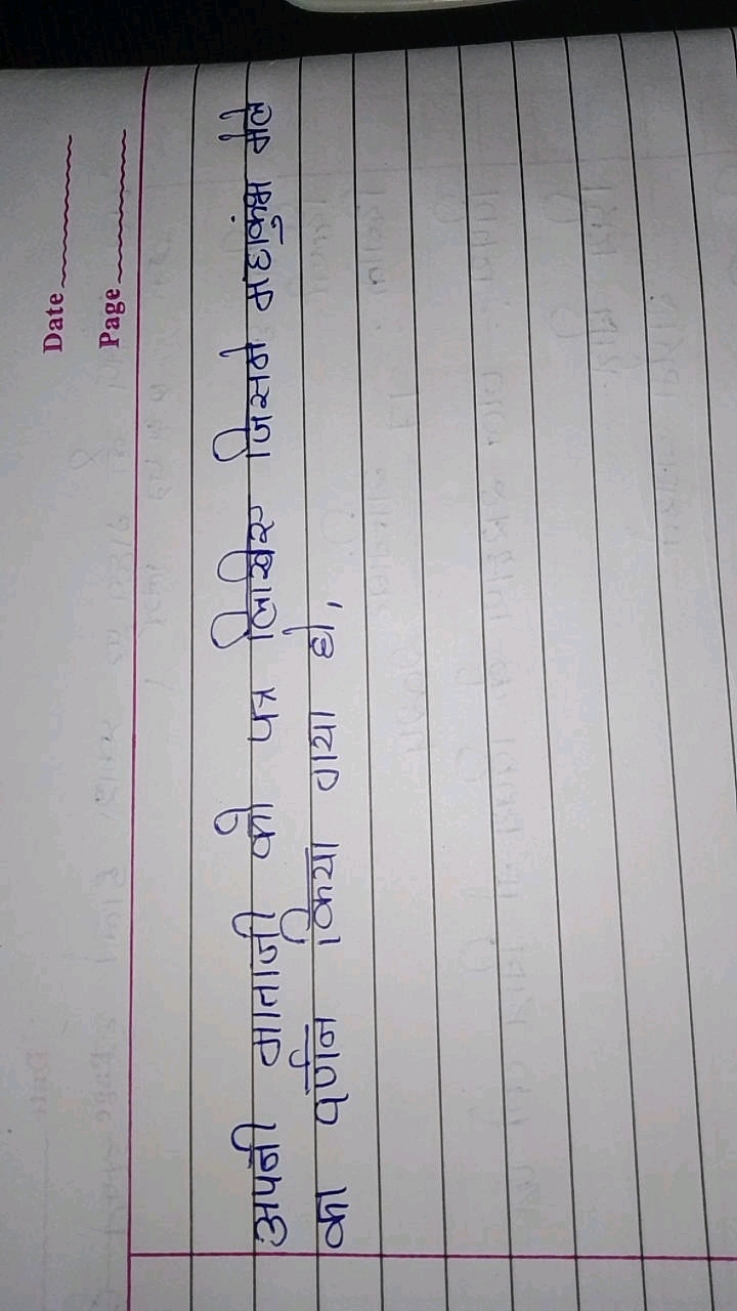 Date
Page
अपनी माताजी को पत्र लिखिए जिसमे महाकुंभ मेले
का वर्णन किया गया हो,